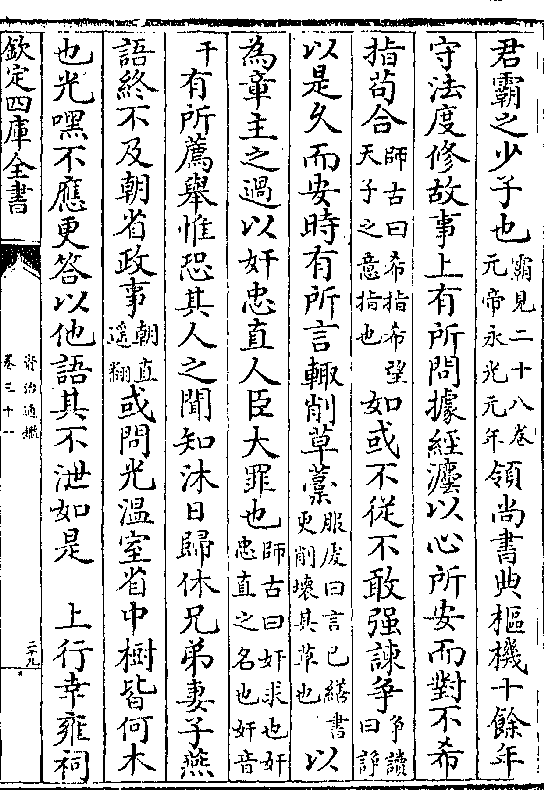 君霸之少子也霸見二十八卷元帝永光元年領尚書典樞機十餘年
守法度修故事上有所問據經灋以心所安而對不希
指苟合師古曰希指希望天子之意指也如或不從不敢强諫爭爭讀曰諍
以是久而安時有所言輙削草藁服虔曰言已繕書更削壞其草也以
為章主之過以奸忠直人臣大罪也師古曰奸求也奸忠直之名也奸音
干有所薦舉惟恐其人之聞知沐日歸休兄弟妻子燕
語終不及朝省政事朝直遥翻或問光溫室省中樹皆何木
也光嘿不應更答以他語其不泄如是 上行幸雍祠
欽定四庫全書
資治通鑑
卷三十一
二十九